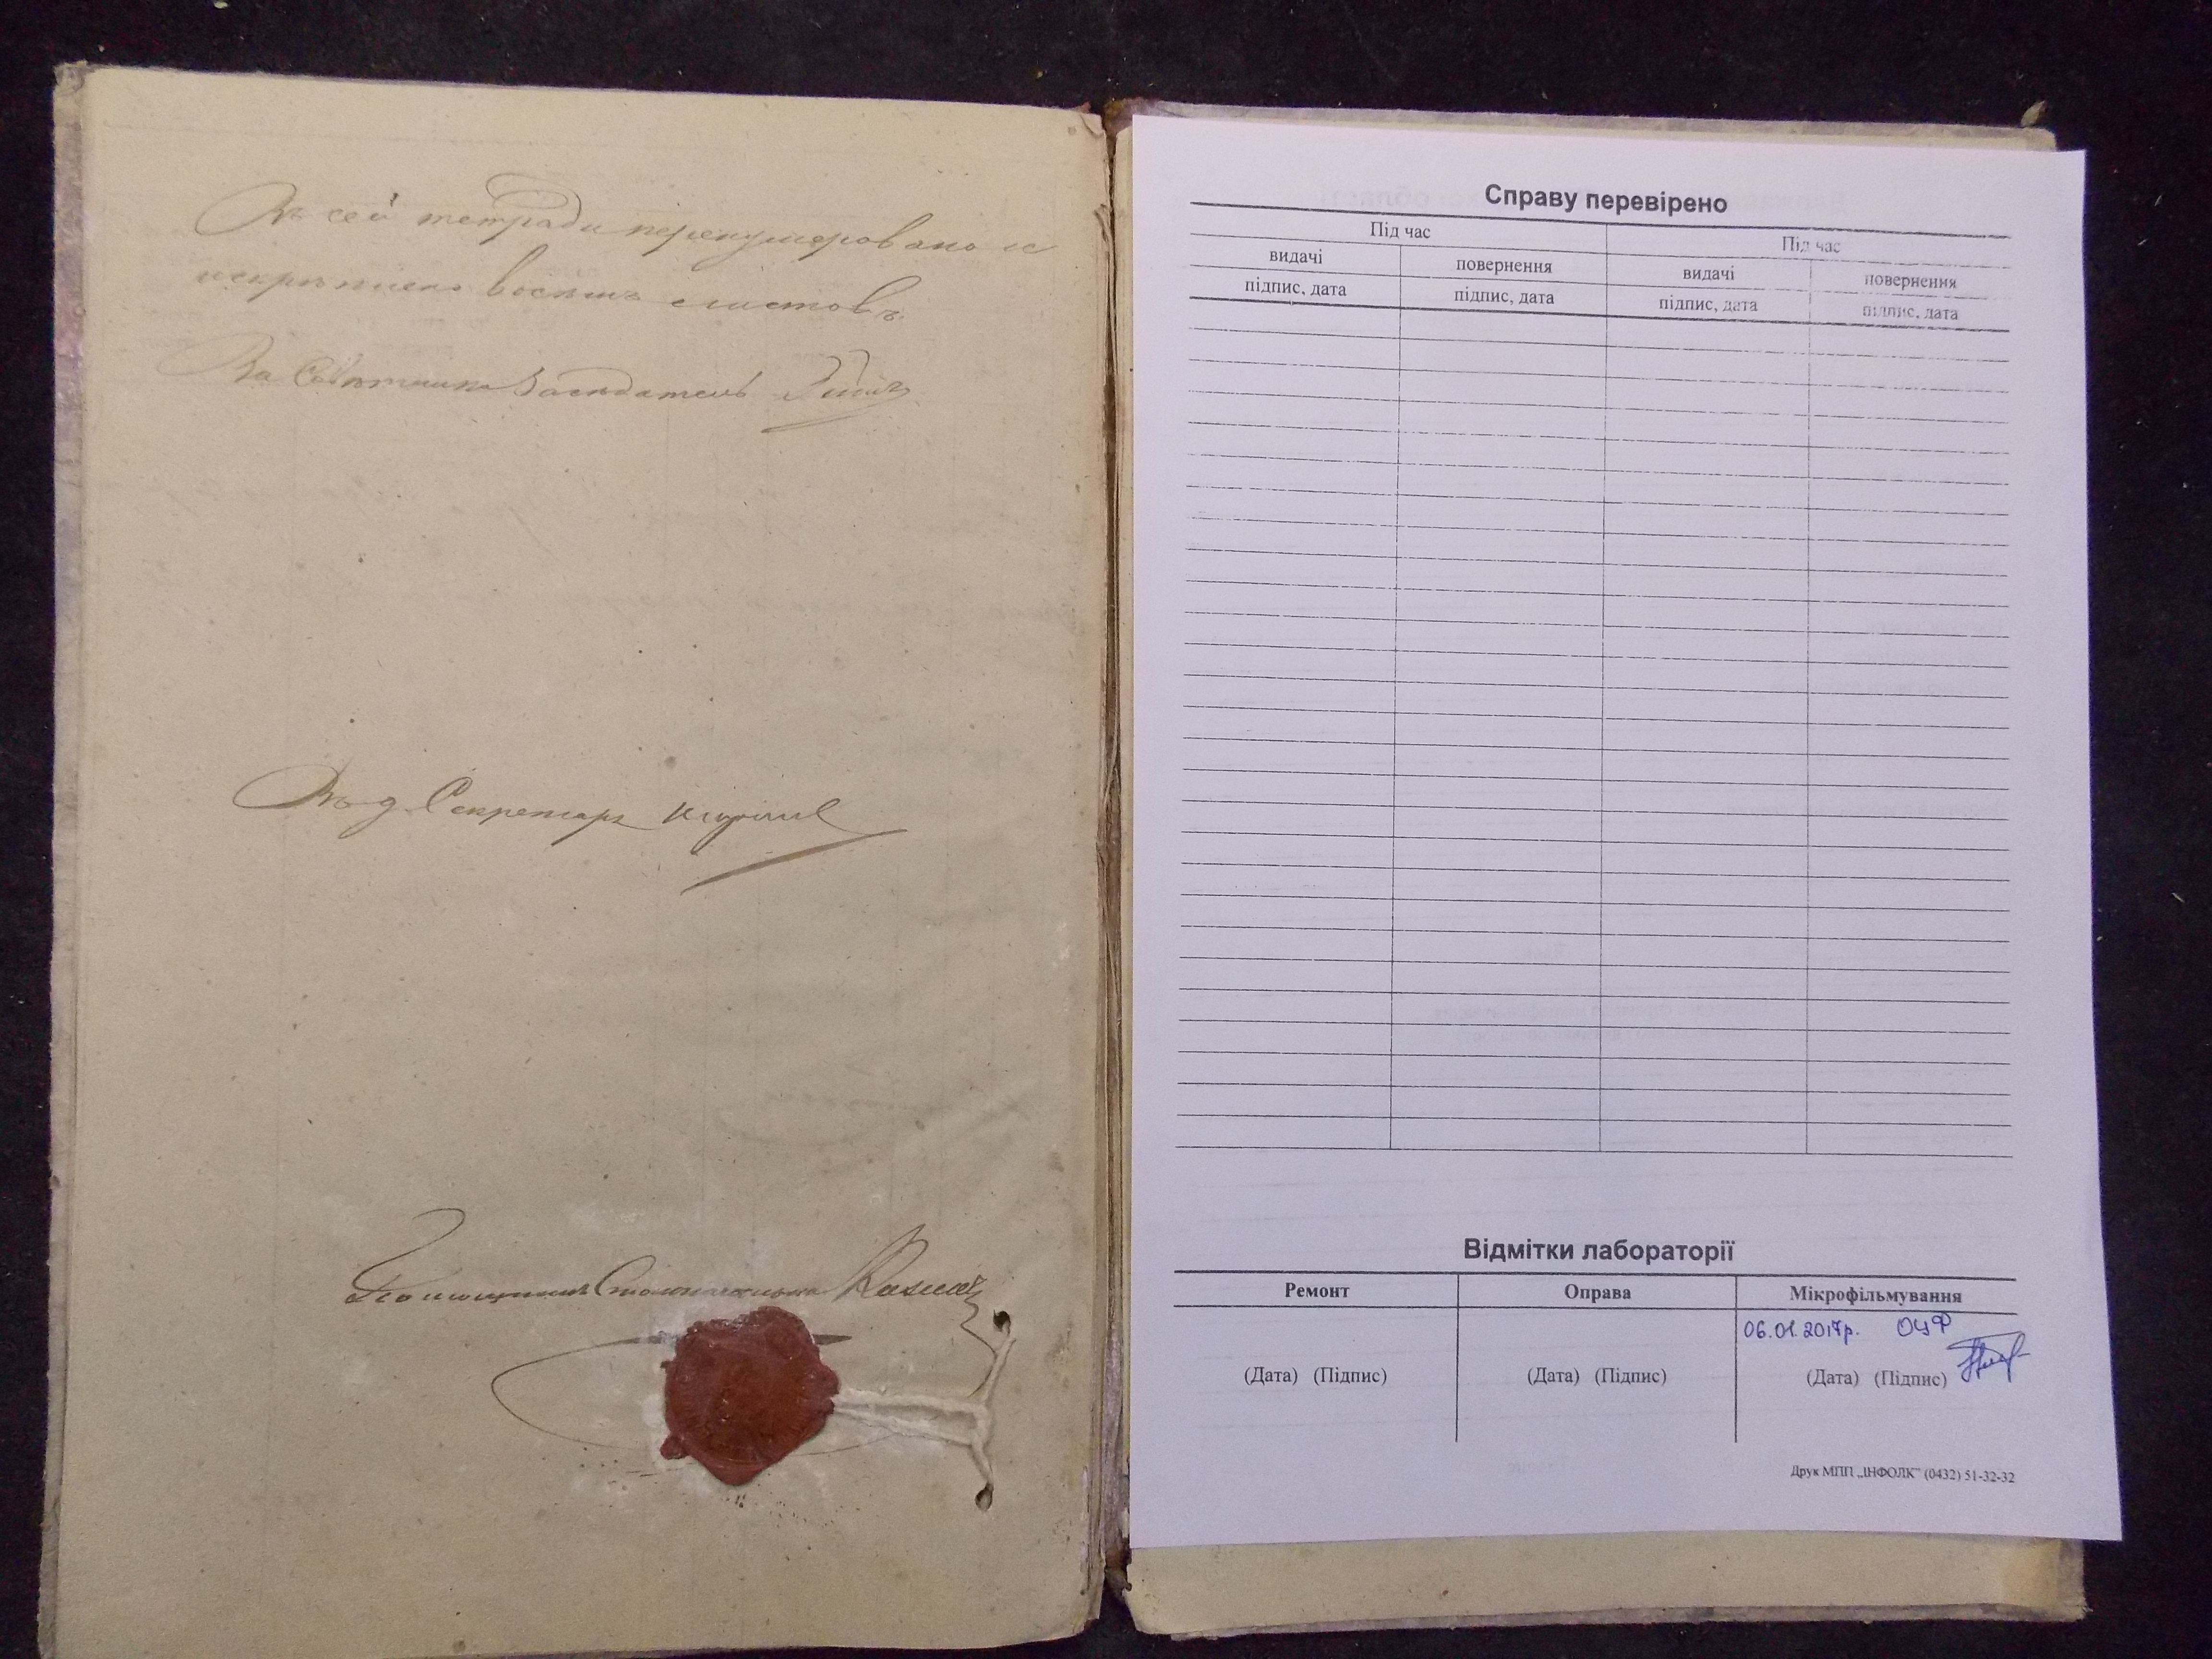 Въ сей тетради перенумеровано и
искрѣплено восемь листовъ.
За Совѣтника Засѣдатель
Въ д. Секретаря
Помощникъ Столоначальника
Справу перевірено
Під час Під час
видачі повернення видачі повернення
підпис, дата підпис, дата підпис, дата підпис, дата
Відмітки лабораторії
Ремонт Оправа Мікрофільмування
06.01.2017р. ОЦФ
(Дата) (Підпис) (Дата) (Підпис) (Дата) (Підпис)
Друк МПП „ІНФОЛК" (0432) 51-32-32